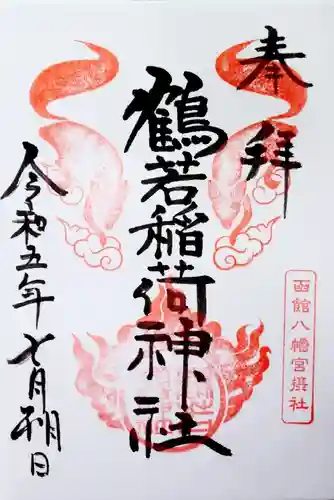 奉拝
鶴若稲荷神社
令和五年七月朔日
函館八幡宮摂社